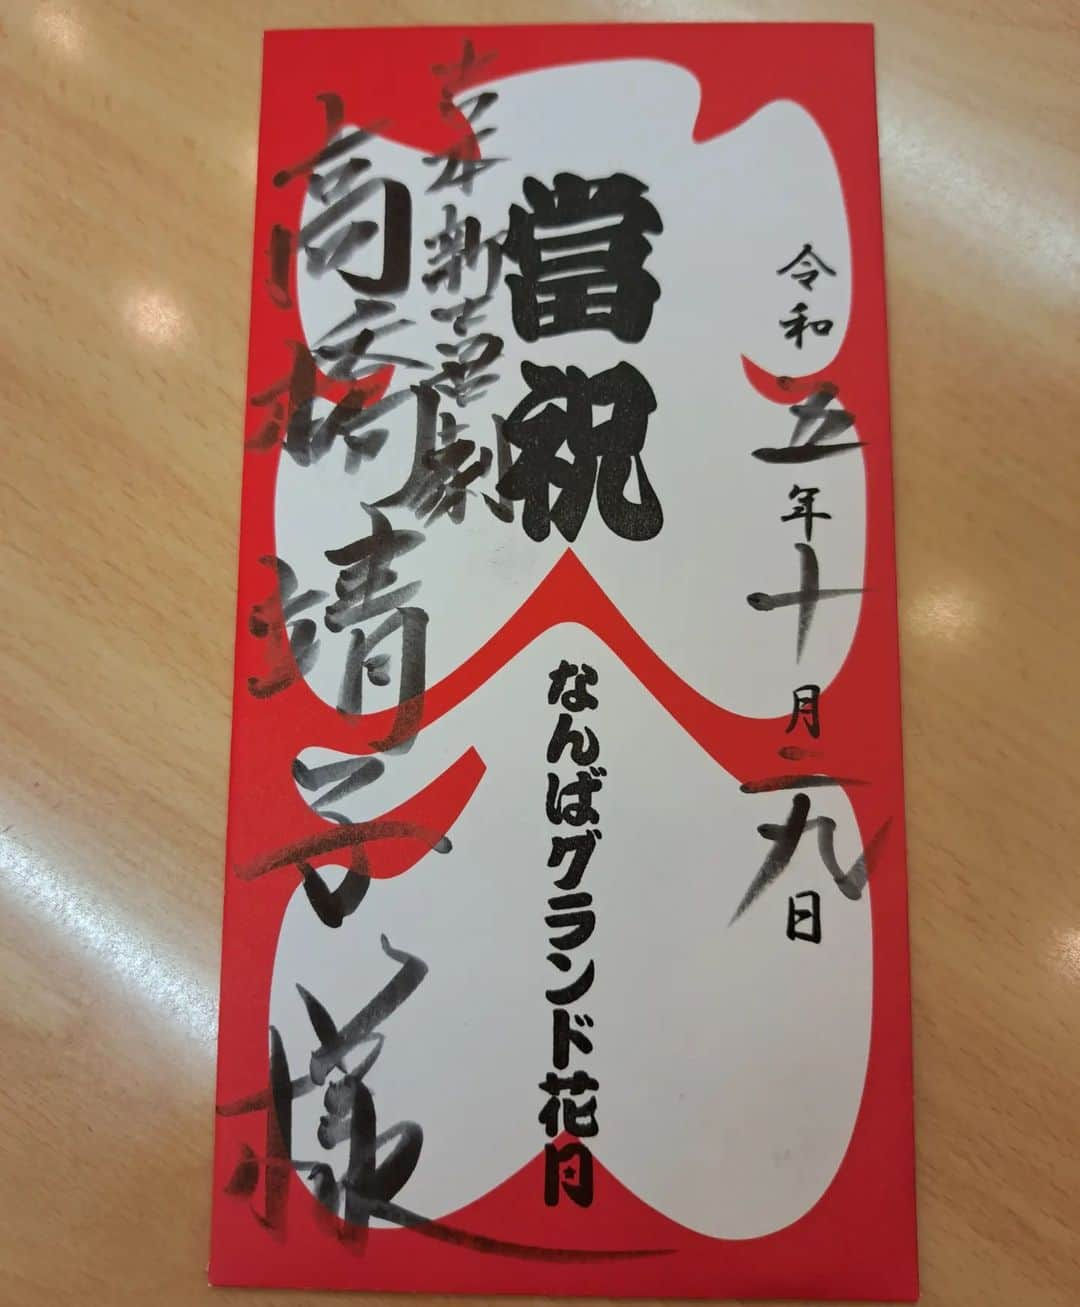 令和五年十月二九日
當祝
なんばグランド花月
吉本新喜劇
高橋靖子様